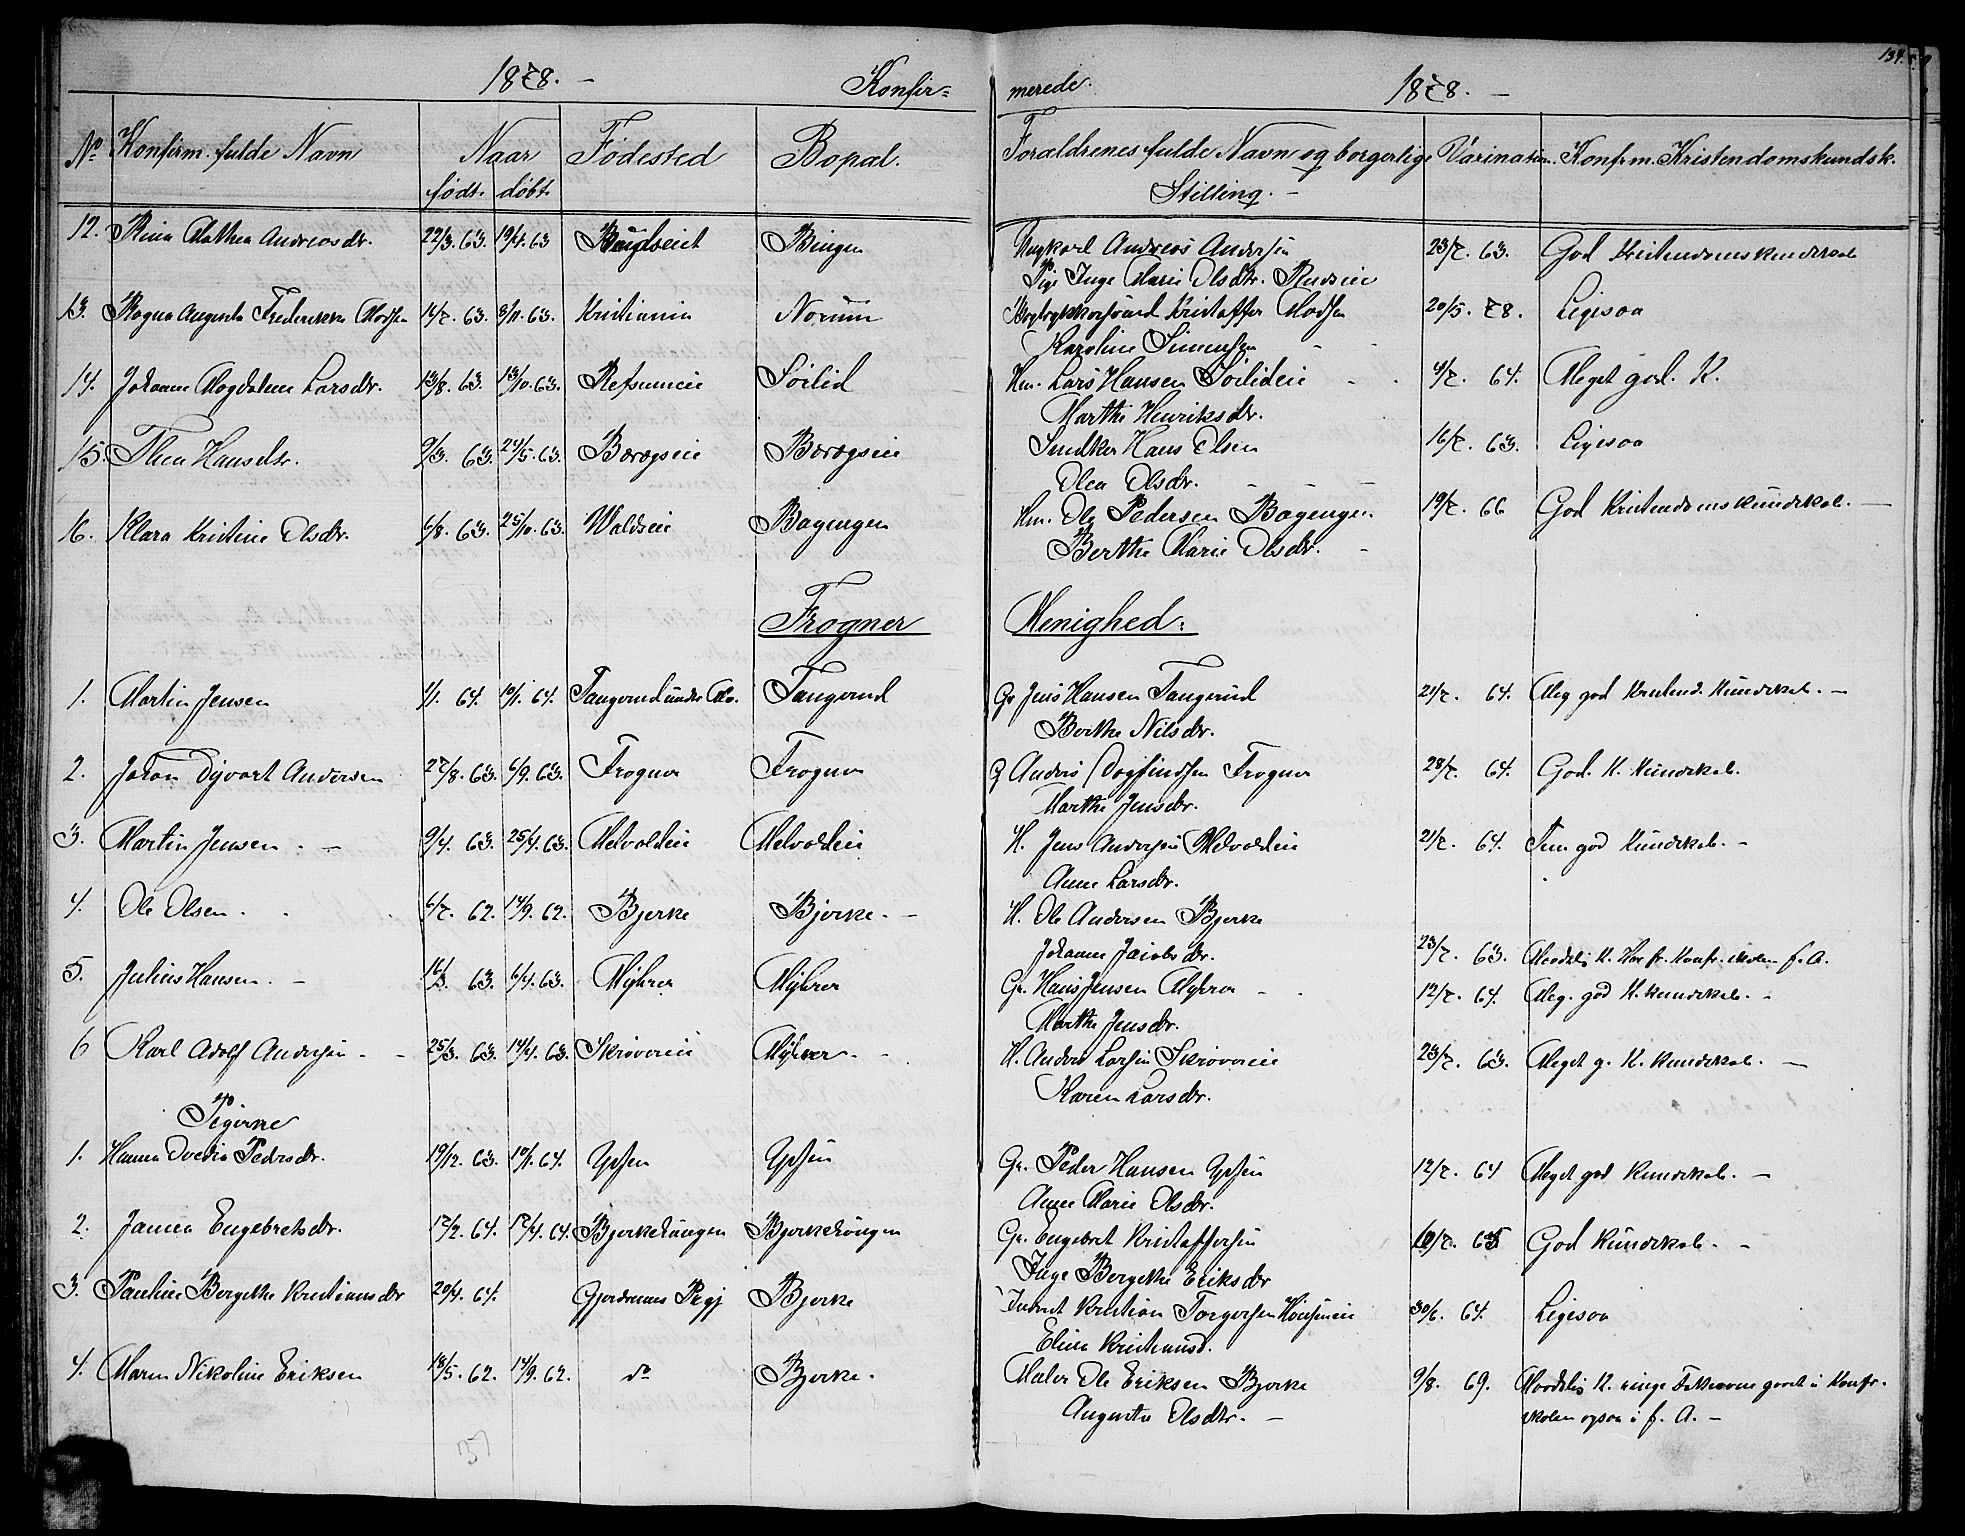 134.
1878. — Konfir=
merede. 1878. —
No Konfirm. fulde Navn Naar Fødested Bopæl.
født. døbt.
Forældrenes fulde Navn og borgerlige Vaxination. Konfirm. Kristendomskundsk.
Stilling. —
12. Mathea Andreasdr. 22/3. 63. 19/4. 63 Bingen
Ungkarl Andreas Andersen 23/7. 63. God Kristendomskundskab
Pige Inge Marie Olsdtr. Rudseie
13. Ragna Augusta Frederikke Madsen 14/7. 63. 8/11. 63. Kristiania Norum
Kristoffer Madsen 20/5. 78. Ligesaa
Karoline Simensen
14. Johanne Magdalene Larsdr. 13/8. 63. 13/10. 63. Refsumeie Sørlid
Hm. Lars Hansen Sørlideie 4/7. 64. Meget god. K.
Marthe Henriksdr.
15. Thea Hansdtr. 9/3. 63. 24/5. 63. Bøvøgseie Bøvøgseie
Snedker Hans Olsen 16/7. 63. Ligesaa
Olea Olsdr.
16. Klara Kristine Olsdr. 6/8. 63. 25/10. 63. Waldseie Bagengen
Hm. Ole Pedersen Bagengen 19/7. 66 God Kristendomskundskab. —
Berthe Marie Olsdr.
Frogner Menighed:
1. Martin Jensen 1/1. 64. 10/1. 64. Tangerud under Mo. Tangerud
Gr Jens Hansen Tangerud 21/7. 64. Meg god Kristend. Kundskab. —
Berthe Nilsdr.
2. Johan Dyvart Andersen 27/8. 63. 6/9. 63. Frogner Frogner
G Anders Dagfindsen Frogner 28/7. 64. God. K. Kundskab.
Marthe Jensdr.
3. Martin Jensen. — 9/4. 63. 25/4. 63. Melvoldeie Melvoldeie
H. Jens Andersen Melvoldeie 21/7. 64. Tem god Kundskab. —
Anne Larsdr.
4. Ole Olsen. 6/7. 62. 14/9. 62. Bjerke Bjerke. —
H. Ole Andersen Bjerke
Johanne Jacobsdr. 23/7. 63. Maadelig K. Har fr. Konfr. skolen f. A.
5. Julius Hansen. — 16/3. 63. 6/4. 63. Myhrer Myhrer
Gr. Hans Jensen Myhrer 12/7. 64. Meg. god K. kundskab. —
Marthe Jensdr.
6 Karl Adolf Andersen 25/3. 63. 14/4. 63. Skrøvereie Myhrer
H. Anders Larsen Skrøvereie 23/7. 63. Meget g. K. kundskab. —
Karen Larsdr.
Pigerne
1. Hanna Pedersdr. 19/12. 63. 10/1. 64. Ypsen Ypsen
Gr. Peder Hansen Ypsen 12/7. 64 Meget god Kundskab. —
Anne Marie Olsdr.
2. Janna Engebretsdr. 17/2. 64. 17/4. 64. Bjerkeløngen Bjerkeløngen
Gr. Engebret Kristoffersen 10/7. 65 God Kundskab. —
Inge Bergethe Eriksdr
3. Pauline Bergethe Kristiansdr 20/4. 64. Gjerdrums Prgj Bjerke
Inderst Kristian Torgersen 30/6. 64. Ligesaa
Eline Kristiansd.
4. Maren Nikoline Eriksen 18/5. 62. 14/9. 62. do Bjerke.
Maler Ole Eriksen Bjerke 9/8. 69. Maadelig K. ringe Fatteevne gaaet i Konfr.
Auguste Olsdtr. — skolen ogsaa i f. A. —